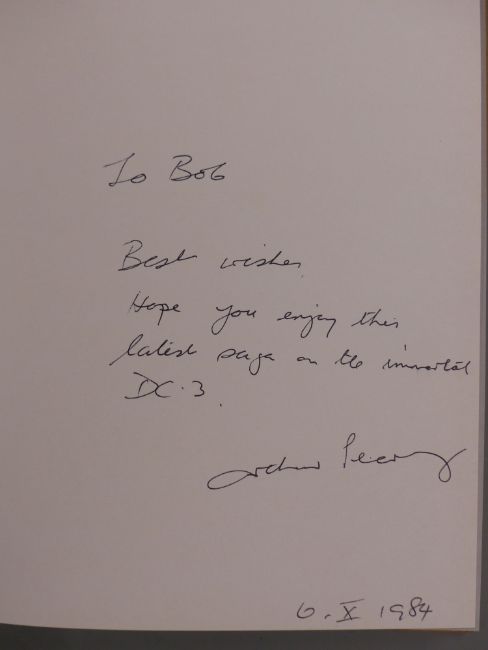 To Bob
Best wishes
Hope you enjoy this
latest saga on the immortal
DC.3.
Arthur Pearcy
6.X 1984